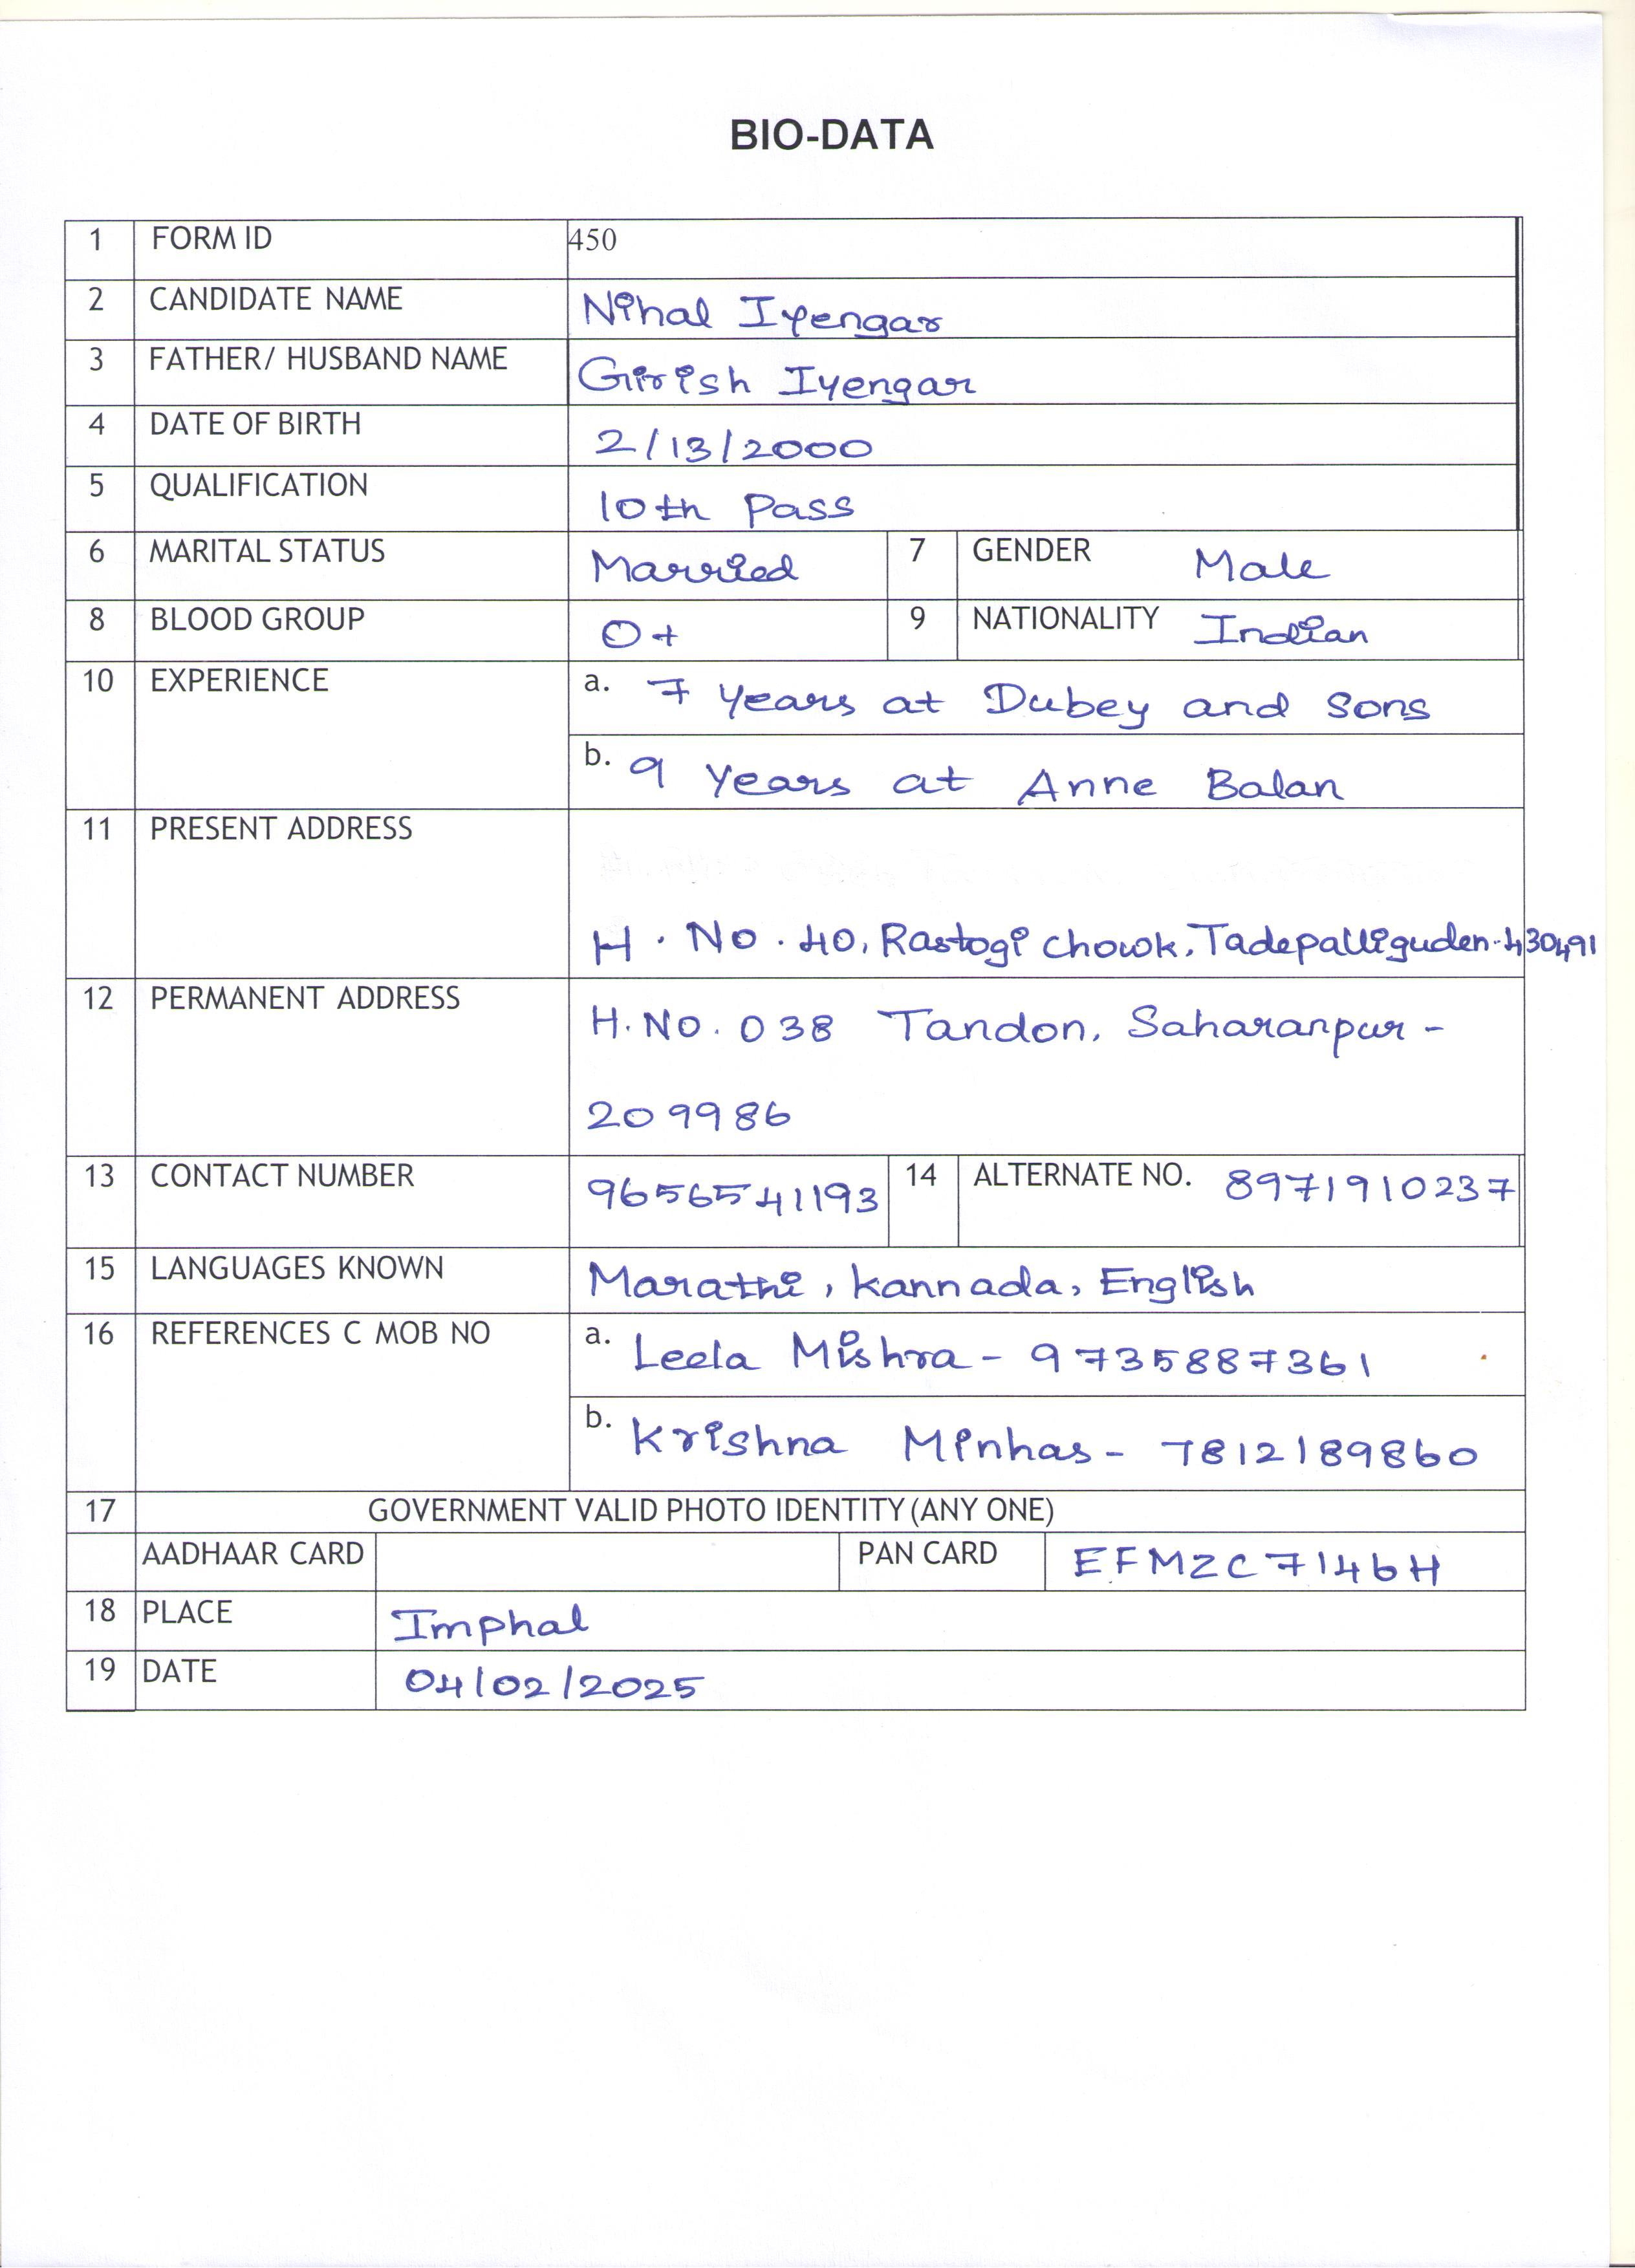 BIO-DATA
1 FORM ID 450
2 CANDIDATE NAME Nihal Iyengar
3 FATHER/ HUSBAND NAME Girish Iyengar
4 DATE OF BIRTH 2/13/2000
5 QUALIFICATION 10th Pass
6 MARITAL STATUS Married 7 GENDER Male
8 BLOOD GROUP O+ 9 NATIONALITY Indian
10 EXPERIENCE a. 7 Years at Dubey and Sons
b. 9 Years at Anne Balan
11 PRESENT ADDRESS
H. No. 40, Rastogi Chowk, Tadepalliguden-430491
12 PERMANENT ADDRESS H.No. 038 Tandon, Saharanpur -
209986
13 CONTACT NUMBER 9656541193 14 ALTERNATE NO. 8971910237
15 LANGUAGES KNOWN Marathi, Kannada, English
16 REFERENCES C MOB NO a. Leela Mishra - 9735887361
b. Krishna Minhas - 7812189860
17 GOVERNMENT VALID PHOTO IDENTITY (ANY ONE)
AADHAAR CARD PAN CARD EFMZC7146H
18 PLACE Imphal
19 DATE 04/02/2025